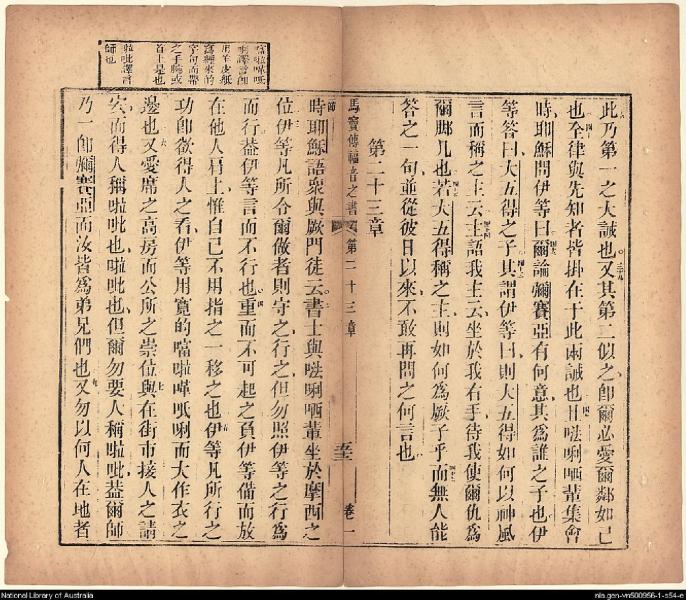 此乃第一之大誡也又其第二似之卽爾必愛爾鄰如己
也全律與先知者皆掛在于此兩誡也且𠵽唎哂輩集會
時耶穌問伊等曰爾論彌賽亞有何意其爲誰之子也伊
等答曰大五得之子其謂伊等曰則大五得如何以神風
言而稱之主云主語我主云坐於我右手待我使爾仇爲
爾脚几也若大五得稱之主則如何爲厥子乎而無人能
答之一句並從彼日以來不敢再問之何言也
第二十三章
馬竇傳福音之書 第二十三章 卷一
時耶穌語衆與厥門徒云書士與𠵽唎哂輩坐於摩西之
位伊等凡所令爾做者則守之行之但勿照伊等之行爲
而行蓋伊等言而不行也重而不可起之負伊等備而放
在他人肩上惟自己不用指之一移之也伊等凡所行之
功卽欲得人之看伊等用寬的噹啦嘩呧唎而大作衣之
邊也又愛席之高房而公所之崇位與在街市接人之請
安而得人稱啦吡也啦吡也但爾勿要人稱啦吡蓋爾師
乃一卽彌賽亞而汝皆爲弟兄們也又勿以何人在地者
噹啦嘩呧
唎譯言卽
用羊皮紙
寫經來的
字句而帶
之手腕或
首上是也
啦吡譯言
師也
National Library of Australia
nla.gen-vn500956-1-s54-e